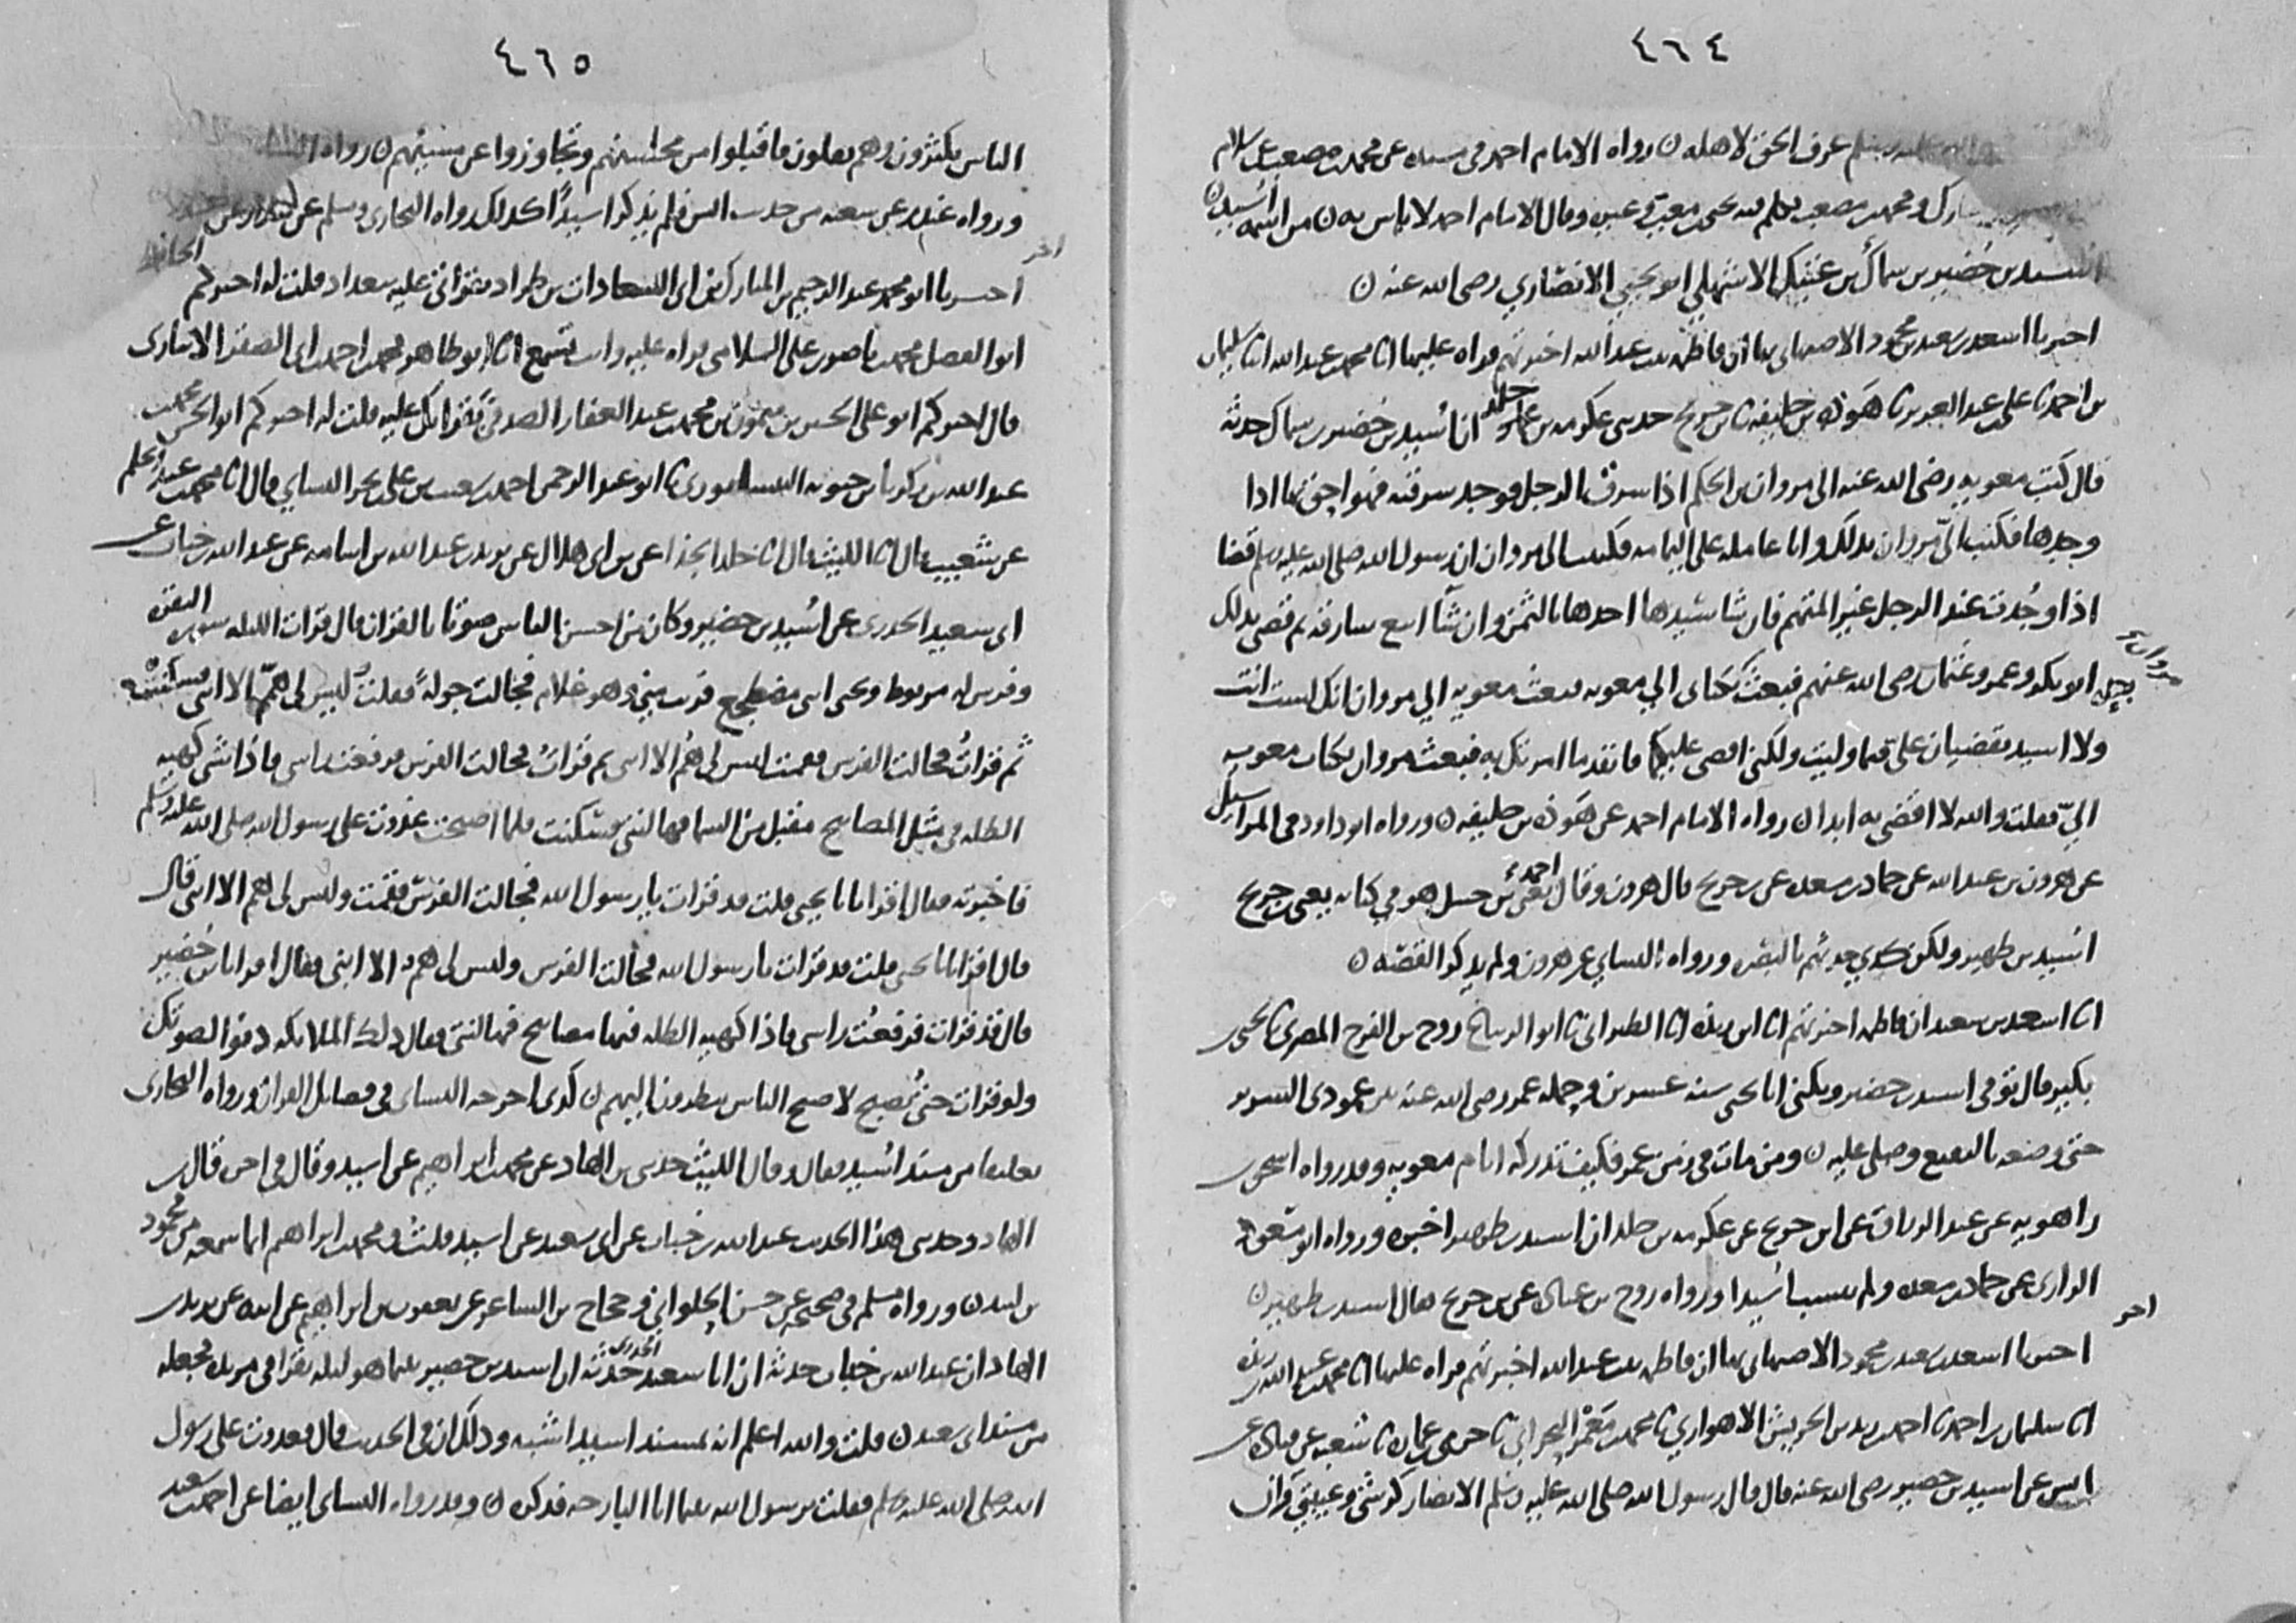 ٤٦٤
عليه وسلم عرف الحق لاهله ں رواه الامام احمد فى مسنده عن محمد بن مصعب عن سلام
ومحمد بن مصعب تكلم فيه يحيى بن معين وقال الامام احمد لا باس به ں من اسمه اسيد ں
اسيد بن حضير بن سماك بن عتيك الاشهلي ابو يحيى الانصاري رضى الله عنه ں
اخبرنا اسعد بن سعيد بن محمود الاصبهانى بها ان فاطمه بنت عبد الله اخبرتهم قراه عليها انا محمد بن عبد الله انا سليمان
بن احمد ثنا على بن عبد العزيز ثنا هوذه بن خليفه ثنا بن جريج حدثنى عكرمه بن خالد ان اسيد بن حضير بن سماك حدثه
قال كتب معويه رضى الله عنه الى مروان بن الحكم اذا سرق الرجل فوجد سرقته فهو احق بها اذا
وجدها فكتب الىّ مروان بذلك وانا عامله على اليمامه فكتبت الى مروان ان رسول الله صلى الله عليه وسلم قضا
اذا وجدت عند الرجل غير المتهم فان شا سيدها اخذها بالثمن وان شا اتبع سارقه ثم قضى بذلك
بعده ابو بكر وعمر وعثمان رضى الله عنهم فبعث بكتابى الي معويه فبعث معويه الي مروان انك لست انت
ولا اسيد تقضيان علىّ فيما وليت ولكنى اقضى عليكما فانفذ ما امرتك به فبعث مروان بكتاب معويه
اليّ فقلت والله لا اقضى به ابدا ں رواه الامام احمد عن هوذه بن خليفه ں ورواه ابو داود فى المراسيل
عن هرون بن عبد الله عن حماد بن مسعده عن بن جريج قال هرون وقال احمد يعنى بن حنبل هو في كتابه يعنى بن جريج
اسيد بن ظهير ولكن كذي حدثهم بالبصره ورواه النساي عن هرون ولم يذكر القصه ں
انا اسعد بن سعيد ان فاطمه اخبرتهم انا ابن ريذه انا الطبرانى ثنا ابو الزنباع روح بن الفرج المصرى ثنا يحيى بن
بكير قال توفى اسيد بن حضير ويكنى ابا يحيى سنه عشرين وحمله عمر رضى الله عنه بين عمودى السرير
حتى وضعه بالبقيع وصلى عليه ں ومن مات فى زمن عمر فكيف تدركه ايام معويه وقد رواه اسحق بن
راهويه عن عبد الرزاق عن ابن جريج عن عكرمه بن خالد ان اسيد بن ظهير اخبره ورواه ابو مسعود
الرازى عن حماد بن مسعده ولم ينسب اسيدا ورواه روح بن عباده عن بن جريج فقال اسيد بن ظهير ں
اخر
اخبرنا اسعد بن سعيد بن محمود الاصبهانى بها ان فاطمه بنت عبد الله اخبرتهم قراه عليها انا محمد بن عبد الله بن ريذه
انا سليمان بن احمد ثنا احمد بن الحريش الاهوازي ثنا محمد بن معمر البحرانى ثنا حرمى بن عماره ثنا شعبه عن قتاده عن
انس عن اسيد بن حضير رضى الله عنه قال قال رسول الله صلى الله عليه وسلم الانصار كرشى وعيبتى وان
٤٦٥
الناس يكثرون وهم يقلون فاقبلوا من محسنهم وتجاوزوا عن مسيئهم ں رواه
ورواه غندر عن شعبه من حديث انس ولم يذكر اسيداً كذلك رواه البخارى ومسلم عن بندار عن غندر
اخر
اخبرنا ابو محمد عبد الرحيم بن المبارك بن ابى السعادات بن طراد بقراتى عليه ببغداد قلت له اخبركم الحافظ
ابو الفضل محمد بن ناصر بن على السلامى قراه عليه وانت تسمع انا ابو طاهر محمد بن احمد بن ابى الصقر الانبارى
قال اخبركم ابو على الحسن بن ميمون بن محمد بن عبد الغفار الصدفى بقراتك عليه قلت له اخبركم ابو الحسن محمد بن
عبد الله بن زكريا بن حيويه النيسابورى ثنا ابو عبد الرحمن احمد بن شعيب بن على بن بحر النساي قال انا محمد بن عبد الحكم
عن شعيب قال انا الليث قال انا خالد عن بن ابى هلال عن يزيد بن عبد الله بن اسامه عن عبد الله بن خباب عن
ابى سعيد الخدرى عن اسيد بن حضير وكان من احسن الناس صوتا بالقران قال قرات الليله سوره البقره
وفرس لى مربوط ويحيى ابنى مضطجع قريب منى وهو غلام فجالت جوله فقمت ليس لى همّ الا ابنى
ثم قراتُ فجالت الفرس فقمت ليس لى همُ الا ابنى ثم قراتُ فجالت الفرس فرفعت راسى فاذا شى كهيه
الظله فى مثل المصابيح مقبل من السما فهالنى فسكنت فلما اصبحت غدوت على رسول الله صلى الله عليه وسلم
فاخبرته فقال اقرا يا ابا يحيى قلت قد قرات يا رسول الله فجالت الفرس فقمت وليس لى هم الا ابنى قال
قال اقرا يا ابا يحيى قلت قد قرات يا رسول الله فجالت الفرس وليس لى همٌ الا ابنى فقال اقرا يا بن حُضير
قال قد قرات فرفعُت راسى فاذا كهيه الظله فيها مصابيح فهالنى فقال ذلك الملايكه دنوا لصوتك
ولو قرات حتى تُصبح لاصبح الناس ينظرون اليهم ں كذى اخرجه النساى فى فضايل القران ورواه البخارى
تعليقا من مسند اسيد فقال وقال الليث حدثنى بن الهاد عن محمد بن ابراهيم عن اسيد وقال فى اخره قال بن
الهاد وحدثنى هذا الحديث عبد الله بن خباب عن ابى سعيد عن اسيد قلت ومحمد بن ابراهيم انما سمعه من محمود
بن لبيد ں ورواه مسلم فى صحيحه عن حسن الحلوانى وحجاج بن الشاعر عن يعقوب بن ابراهيم عن ابيه عن يزيد بن
الهاد ان عبد الله بن خباب حدثه ان ابا سعيد الخدرى حدثه ان اسيد بن حضير بينما هو ليله يقرا فى مربده فجعله
من مسند ابى سعيد ں قلت والله اعلم انه بمسند اسيد اشبه وذلك ان فى الحديث قال فغدوت على رسول
الله صلى الله عليه وسلم فقلت يا رسول الله بينما انا البارحه فذكره ں وقد رواه النساى ايضا عن احمد بن سعيد